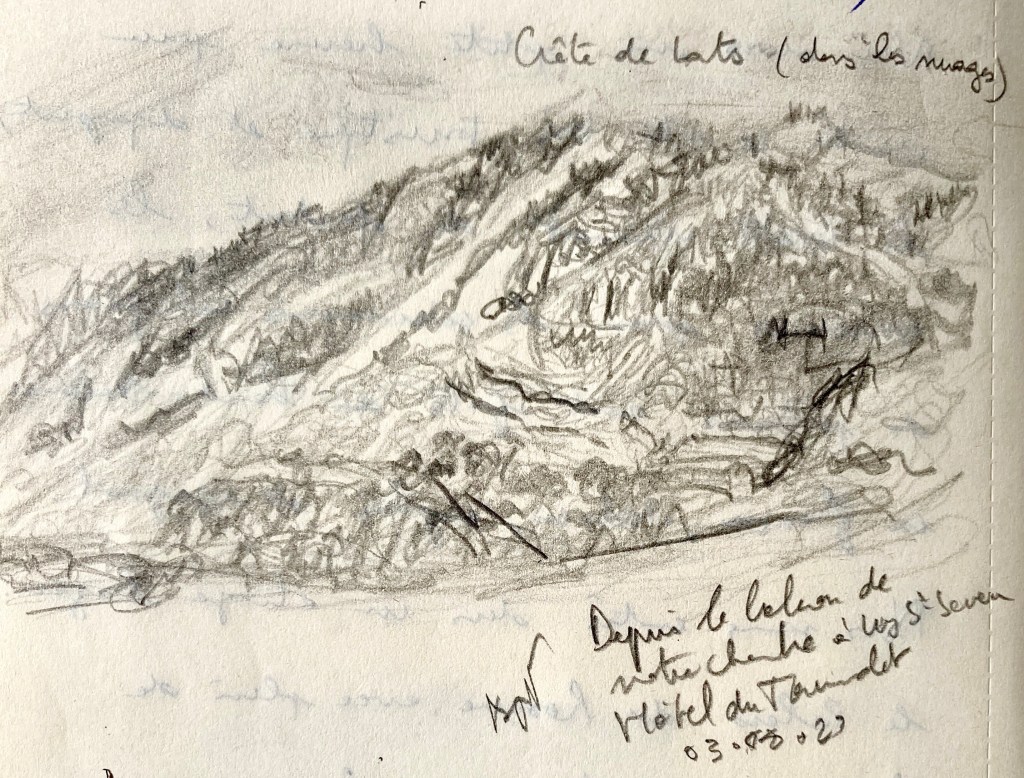 Crête de Lats (dans les nuages)
Depuis le balcon de
notre chambre à Luz St Seveur
Hôtel du Tourmalet
03.08.23